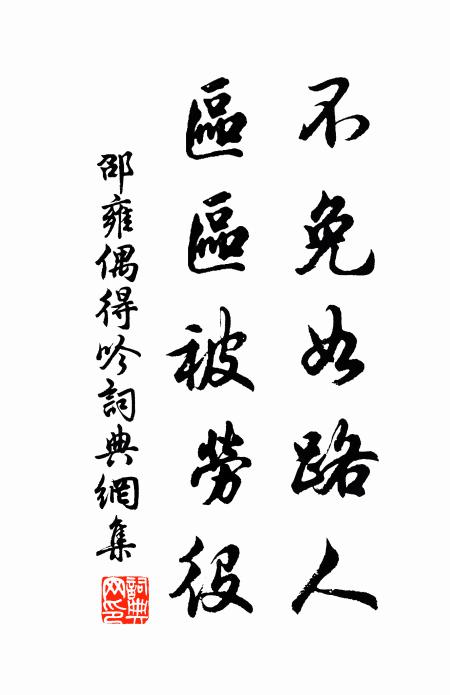 不免如路人
區區被勞役
邵雍偶得吟詞典網集
詞典網印